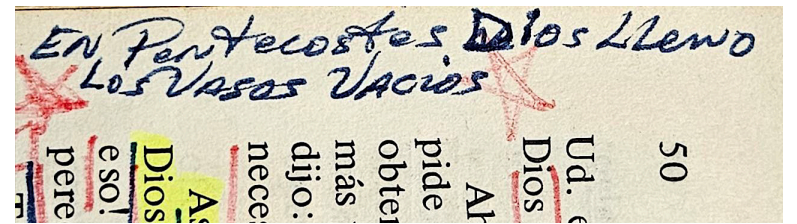 EN PENtecostes Dios LLeNO
Los VASOS VACIOS
50
Ud. e
Dios
Ah
pide
obter
más
dijo:
neces
As
Dios
eso!
pere